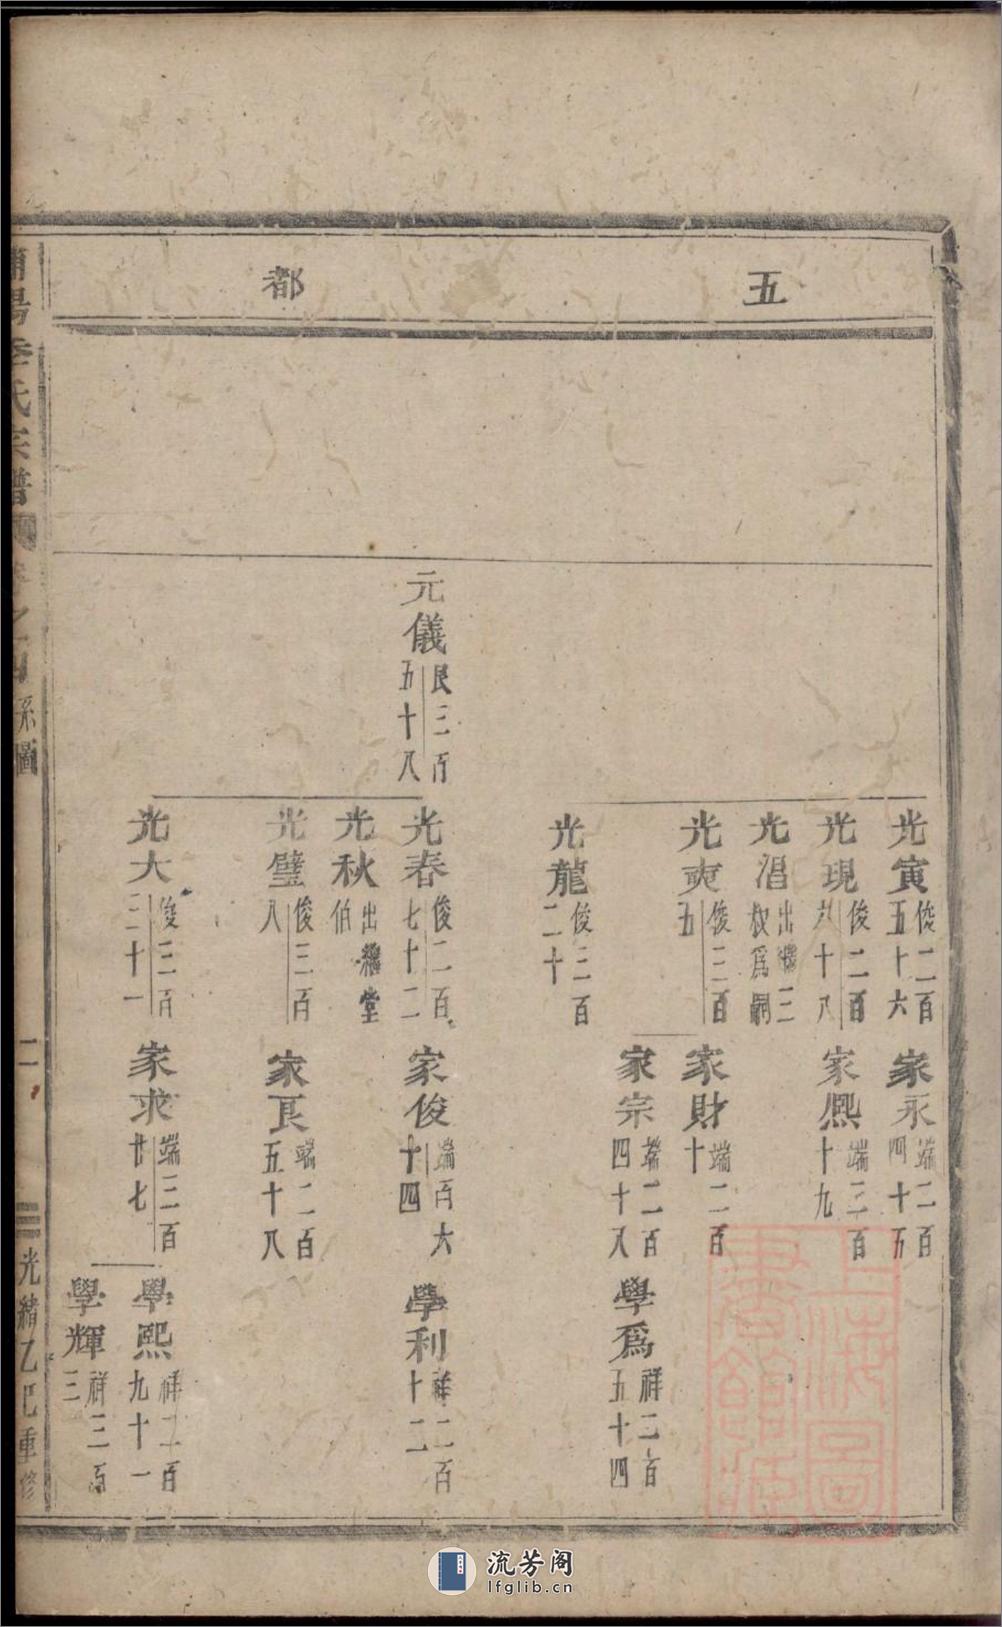 五都
元儀 良三百五十八
光寅 俊二百五十六
光現 俊二百八十八
光淐 出繼三叔爲嗣
光奭 俊三百五
光龍 俊三百二十
光春 俊二百七十二
光秋 出繼堂伯
光璧 俊三百八
光大 俊三百三十一
家永 端二百四十五
家熈 端三百十九
家財 端二百十
家宗 端二百四十八
家俊 端百六十四
家良 端二百五十八
家求 端三百廿七
學爲 祥二百五十四
學利 祥二百十二
學熙 祥二百九十一
學輝 祥三百三
浦陽李氏宗譜
系圖
二
光緒乙巳重修
上海圖書館藏
流芳阁
lfglib.cn